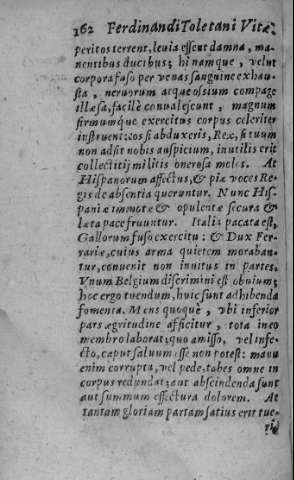 162 Ferdinandi Toletani Vitæ
peritos terrent, leuia essent damna, ma-
nentibus ducibus; hi namque, velut
corpora fuso per venas sanguine exhau-
sta, neruorum atque ossium compage
illæsa, facilè conualescunt, magnum
firmumque exercitus corpus celeriter
instruent: eos si abduxeris, Rex, si tuum
non adsit nobis auspicium, inutilis erit
collectitij militis onerosa moles. At
Hispanorum affectus, & piæ voces Re-
gis de absentia queruntur. Nunc His-
paniæ immotæ & opulentæ secura &
læta pace fruuntur. Italia pacata est,
Gallorum fuso exercitu: & Dux Fer-
rariæ, cuius arma quietem moraban-
tur, conuenit non inuitus in partes.
Vnum Belgium discrimini est obuium;
hoc ergo tuendum, huic sunt adhibenda
fomenta. Mens quoquè, vbi inferior
pars ægritudine afficitur, tota in eo
membro laborat; quo amisso, vel infe-
cto, caput saluum esse non potest: manu
enim corrupta, vel pede, tabes omne in
corpus redundat; aut abscindenda sunt
aut summum effectura dolorem. At
tantam gloriam partam satius erit tue-
ri,